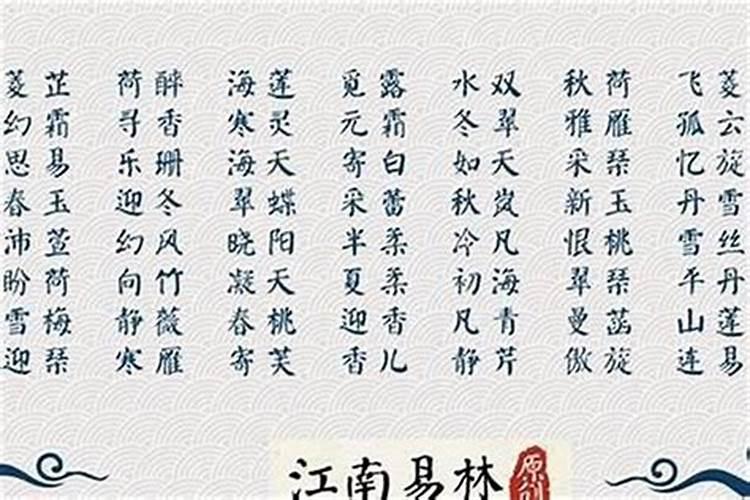 菱芷 荷醉 海莲 觅露 水双 秋荷 飞菱
幻霜 寻香 寒灵 元霜 冬翠 雅雁 孤云
思易 乐珊 海天 寄白 如天 采琴 忆旋
春玉 迎冬 翠蝶 采蕾 秋岚 新玉 丹雪
沛萱 幻风 晓阳 半柔 冷凡 恨桃 雪丝
盼荷 向竹 凝天 夏柔 初海 翠琴 平丹
雪梅 静薇 春桃 迎香 凡青 曼菡 山莲
迎琴 寒雁 寄芙 香儿 静芹 傲旋 连易
江南易林
原创